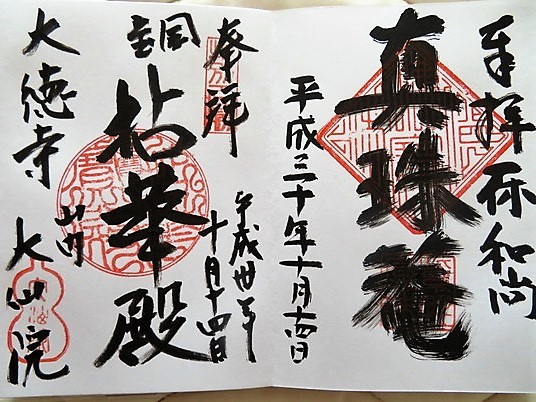 奉拝 弥和尚
真珠菴
平成三十年十月十四日
奉拝
平成卅年
十月十四日
拈華殿
大徳寺
山内
大仙院